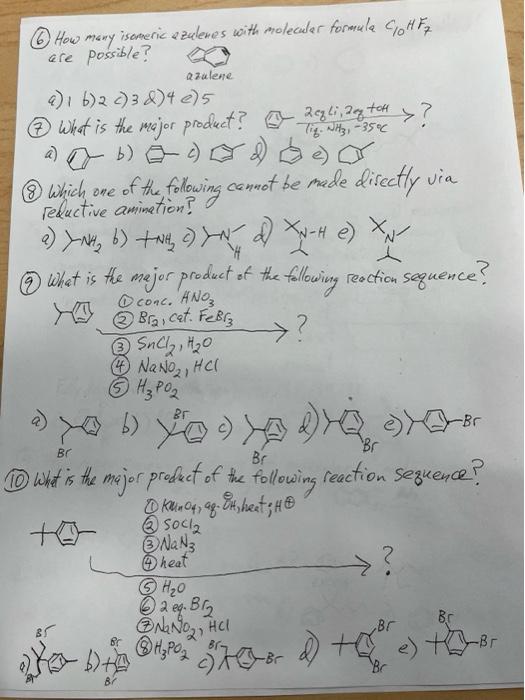 ⑥ How many isomeric azulenes with molecular formula C10HF7
are possible?
azulene
a) 1 b) 2 c) 3 d) 4 e) 5
⑦ What is the major product? 2eq Li, 2eq +OH ?
liq. NH3, -35°C
a) b) c) d) e)
⑧ Which one of the following cannot be made directly via
reductive amination?
a) NH2 b) NH2 c) N H d) N-H e) N
⑨ What is the major product of the following reaction sequence?
① conc. HNO3
② Br2, cat. FeBr3
?
③ SnCl2, H2O
④ NaNO2, HCl
⑤ H3PO2
a) Br b) Br c) Br d) Br e) Br
⑩ What is the major product of the following reaction sequence?
① KMnO4, aq. ⊖OH, heat; H⊕
② SOCl2
③ NaN3
④ heat
?
⑤ H2O
⑥ 2 eq. Br2
⑦ NaNO2, HCl
⑧ H3PO2
a) Br Br b) Br Br c) Br Br d) Br Br e) Br Br